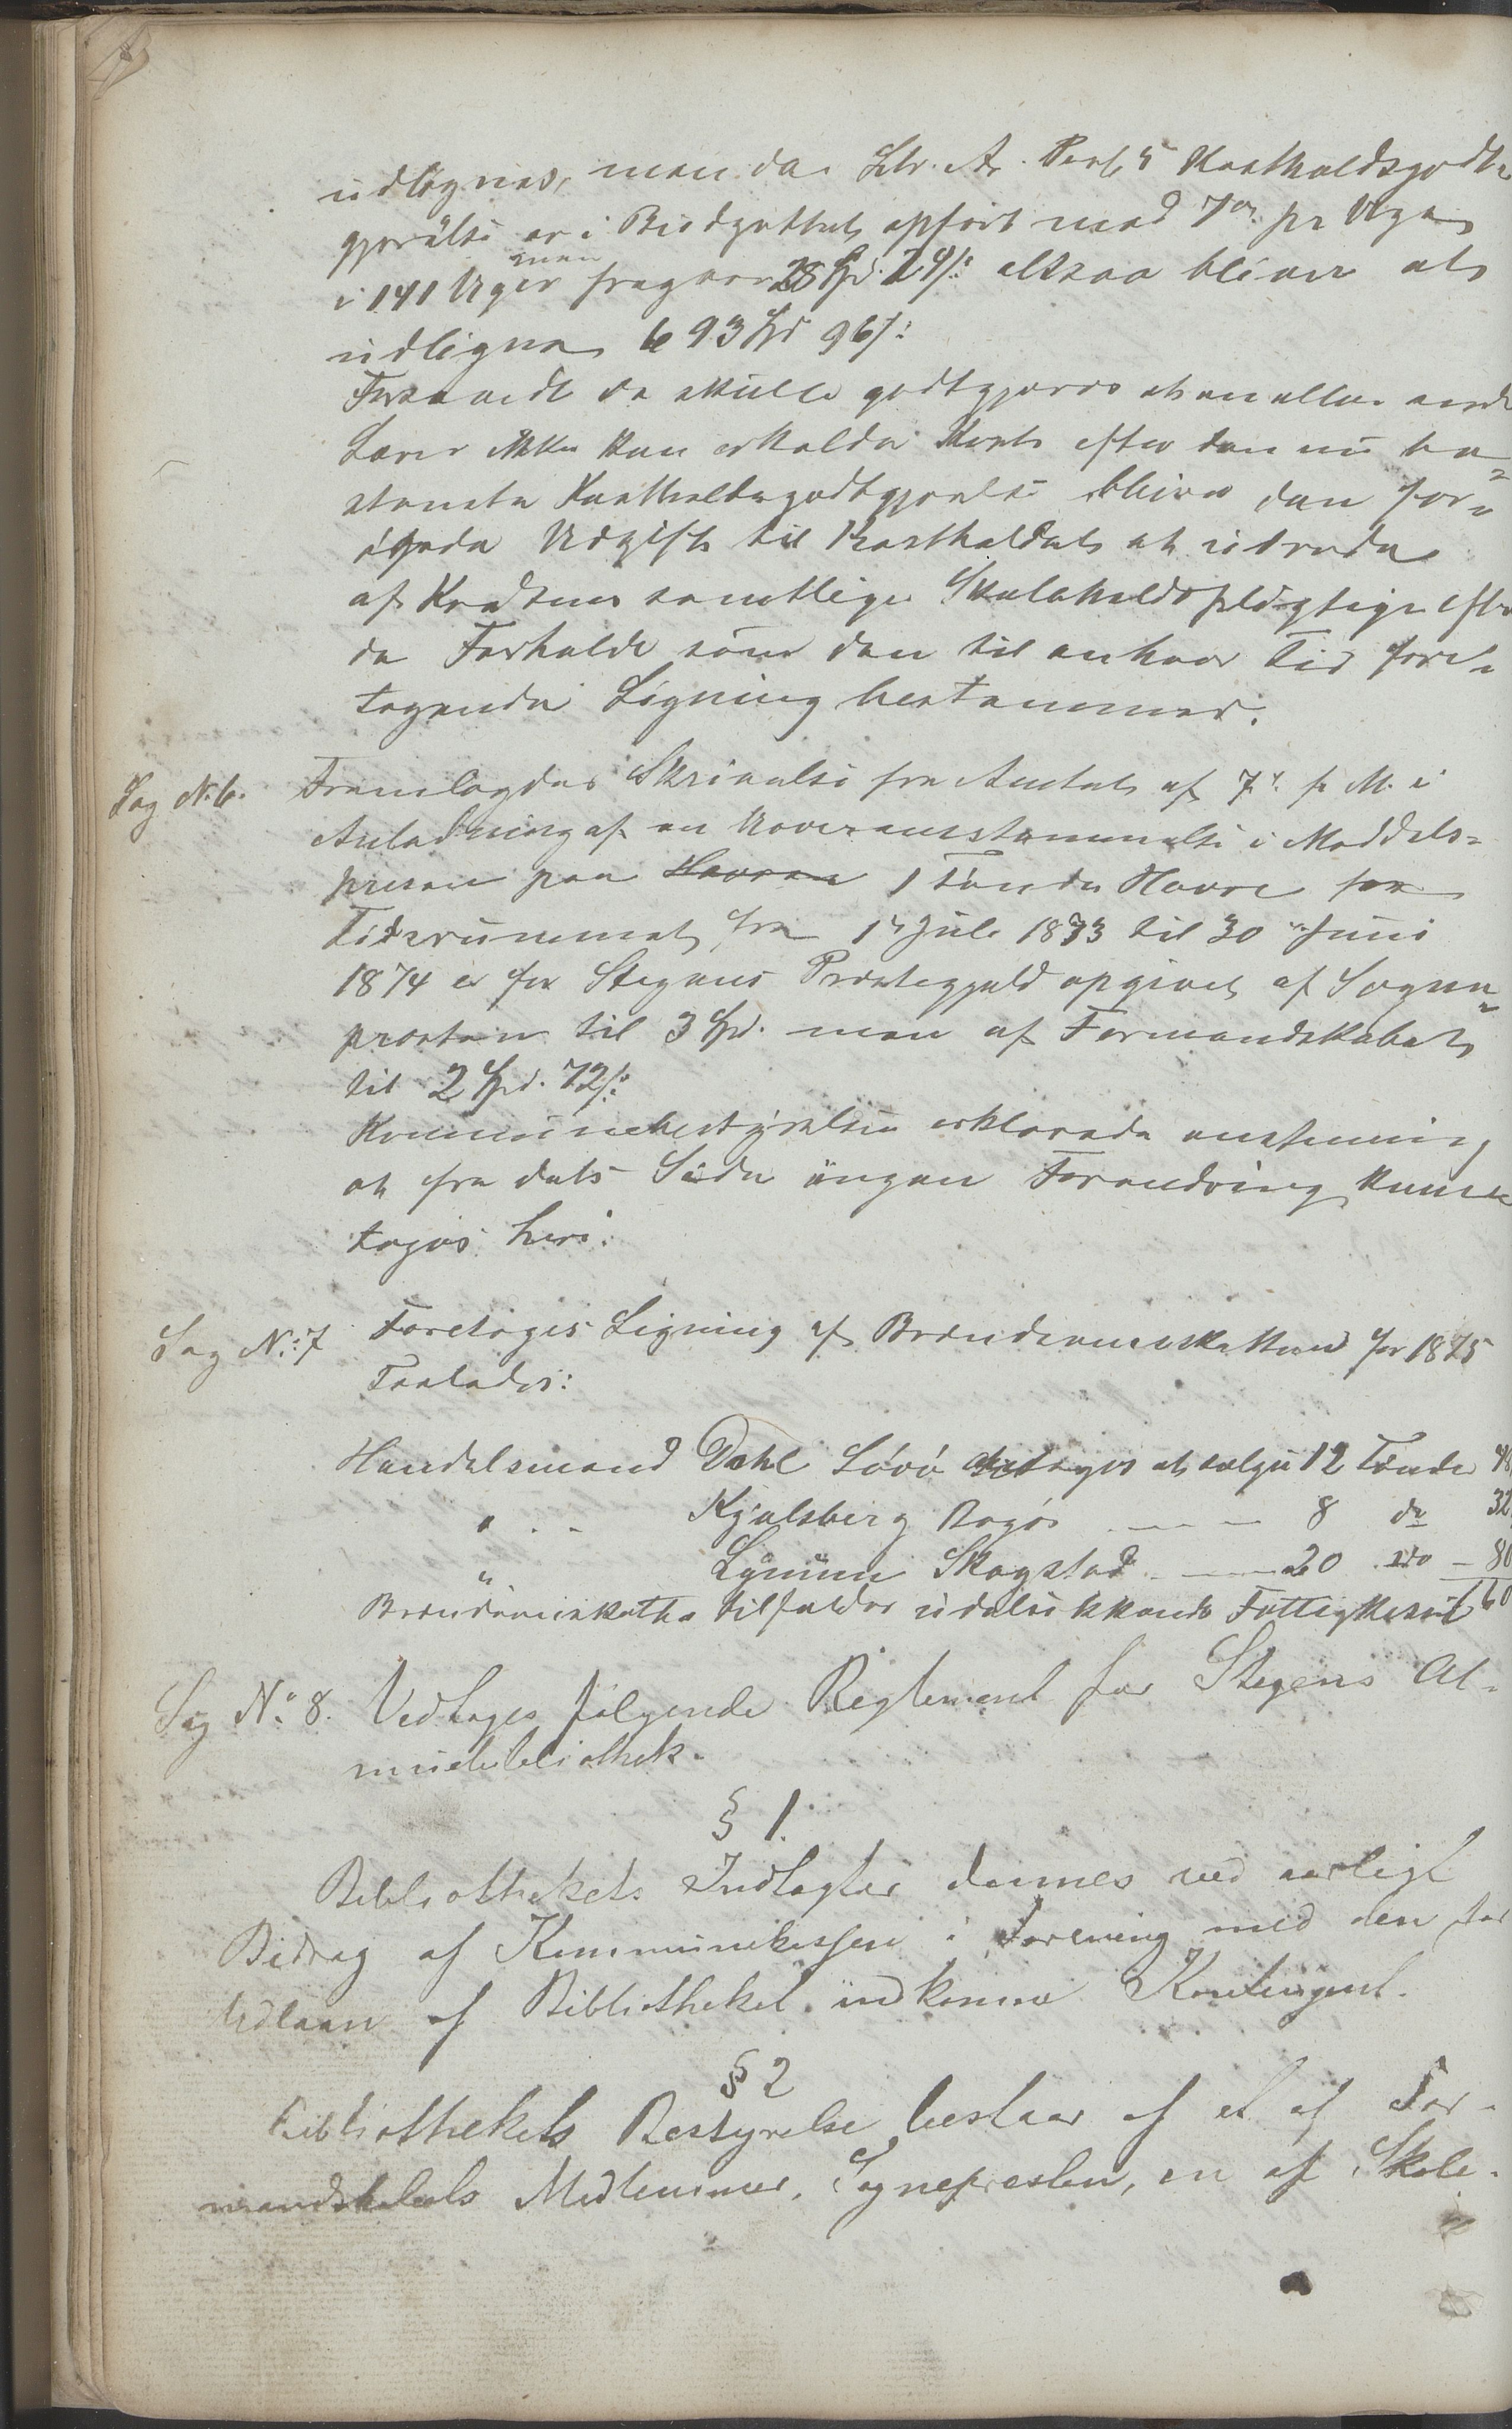 udlignes, men da Litr. A. Post 5 Kostholdsgodt-
gjørelse er i Budgettet opført med 7 pr Uge
i 141 Uger men fragaar 28 Spd. 24 s: altsaa bliver at
udligne 693 Spd 96 s:
Forsaavidt de skulle godtgjøres at en eller anden
Lærer ikke kan erholde Kost efter den nu be-
stemte Kostholdsgodtgjørelse bliver den for-
øgede Udgift til Kostholdet at udrede
af Kredsens samtlige Skoleholdspligtige efter
de Forholde som den til enhver Tid fore-
tagende Ligning bestemmer.
Sag N. 6. Fremlagdes Skrivelse fra Amtet af 7de f. M. i
Anledning af en Uoverensstemmelse i Middels-
prisen paa Havren 1 Tønde Havre for
Tidsrummet fra 1 Juli 1873 til 30 Juni
1874 er for Stegens Præstegjeld opgivet af Sogne-
præsten til 3 Spd. men af Formandskabet
til 2 Spd. 72 s:
Kommunebestyrelsen erklærede enstemmig
at fra dets Side ingen Forandring kunne
tages heri.
Sag N: 7 Foretoges Ligning af Brændevinsskatten for 1875
Saaledes:
Handelsmand Dahl Løvø antages at sælge 12 Tønder 48
" - - Kjelsberg Bogø - - - 8 do 32
" Lynum Skogstad - - 20 do - 80
Brændevinskatten tilfalder udelukkende Fattigkassen 160
Sag No 8. Vedtoges følgende Reglement for Stegens Al-
muebibliothek.
§ 1.
Bibliothekets Indtægter dannes ved aarligt
Bidrag af Kommunekassen i Forening med den for
Udlaan af Bibliotheket indkomne Kontingent.
§ 2
Bibliothekets Bestyrelse bestaar af et af For-
mandskabets Medlemmer, Sognepresten, en af Skole-